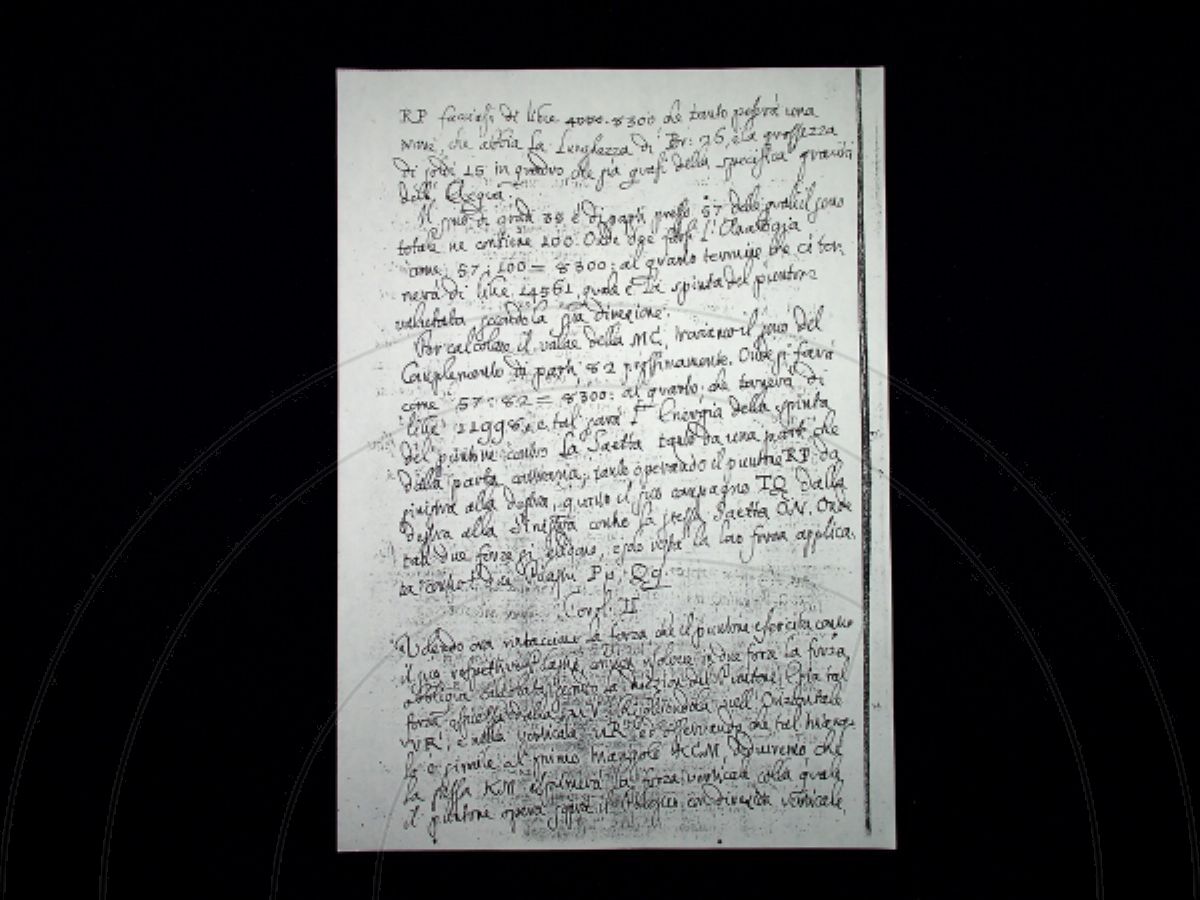 RP facciasi di libre 8300 che tanto peserà una
trave, che abbia la Lunghezza di Br: 25, e la grossezza
di soldi 15 in quadro, che già quasi della specifica gravità
dell'
Il seno di gradi 35 è di parti presso 57 delle quali il seno
totale ne contiene 100. Onde dee farsi l'Analogia
come 57 : 100 = 8300 : al quarto termine che ci tor
nerà di libre 14561 quale è la spinta del puntone
valutata secondo la sua direzione.
Per calcolare il valore della MC, troviamo il seno del
Complemento di parti 82 prossimamente. Onde si farà
come 57 : 82 = 8300 : al quarto, che tornerà di
libre 11998, e tal sarà l'Energia della spinta
del puntone contro la Saetta tanto da una parte che
dalla parte contraria, tanto operando il puntone RP da
sinistra alla destra, quanto il suo compagno TQ dalla
destra alla sinistra contro la stessa Saetta ON. Onde
tali due forze si elidono, la loro forza applica-
ta contro i due Pp, Qq.
Corol. II
Volendo ora rintracciare la forza, che il puntone esercita contro
il suo convien risolvere in due forze la forza
obbliqua secondo la direzion del Puntone, e sia tal
forza espressa dalla uV risolvendola nell'Orizzontale
VR, e nella Verticale uR ed osservando che tal triango-
lo è simile al primo triangolo KCM dedurremo che
la stessa KM esprimerà la forza verticale colla quale
il puntone opera sopra il con direzion verticale,